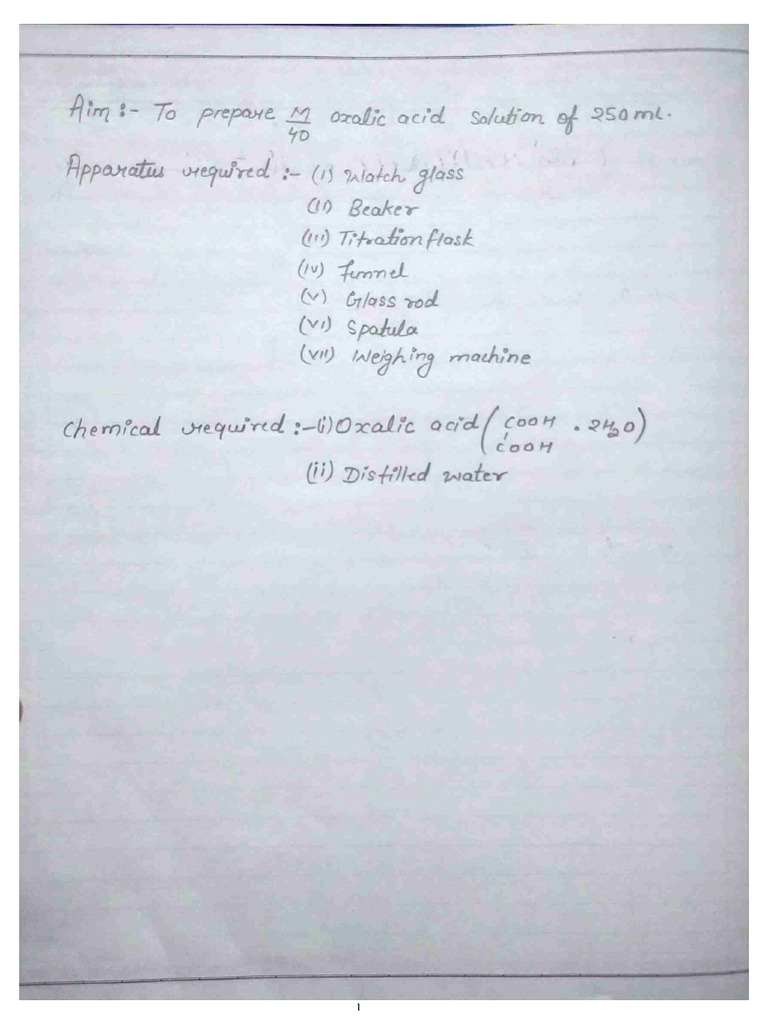 Aim :- To prepare M/40 oxalic acid solution of 250 mL.
Apparatus required :- (i) Watch glass
(ii) Beaker
(iii) Titration flask
(iv) Funnel
(v) Glass rod
(vi) Spatula
(vii) Weighing machine
Chemical required :- (i) Oxalic acid ( COOH . 2H2O )
COOH
(ii) Distilled water
1